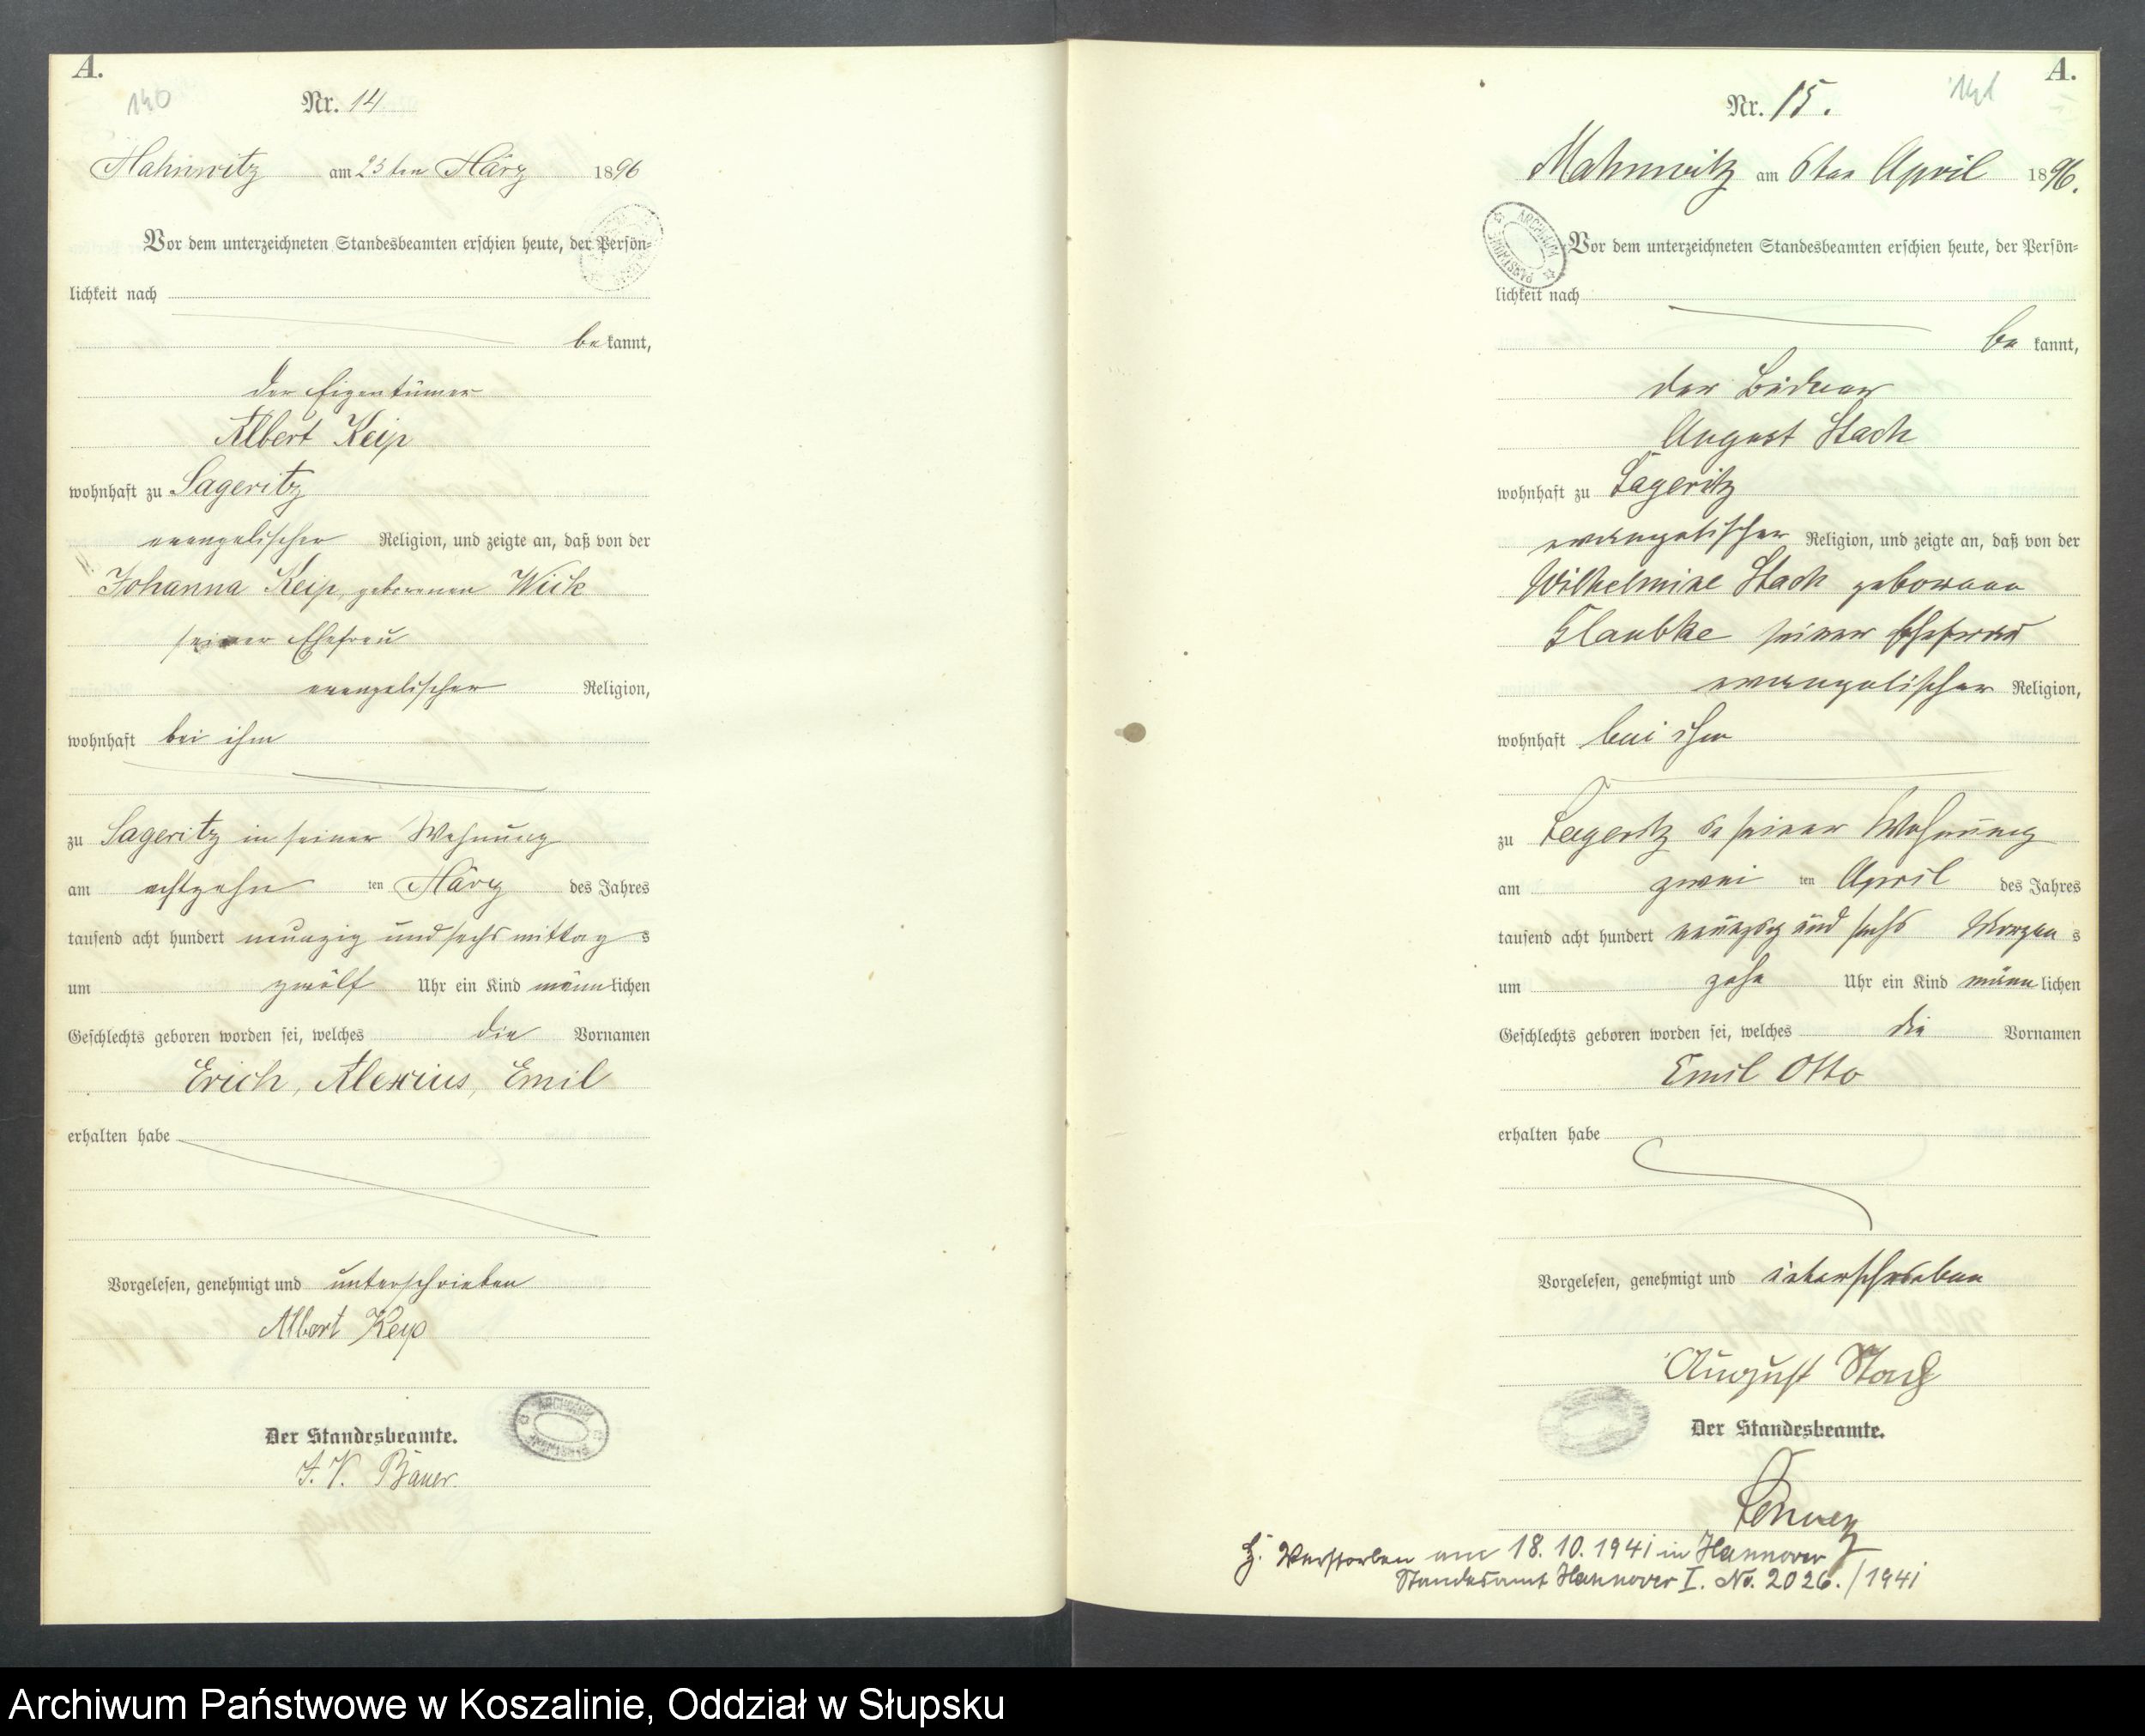 A.
140
Nr. 14
Mahnwitz am 23ten März 1896
Vor dem unterzeichneten Standesbeamten erschien heute, der Persön-
lichkeit nach
bekannt,
der Eigentümer
Albert Keip
wohnhaft zu Sageritz
evangelischer Religion, und zeigte an, daß von der
Johanna Keip, geborenen Wick
seiner Ehefrau
evangelischer Religion,
wohnhaft bei ihm
zu Sageritz in seiner Wohnung
am achtzehn ten März des Jahres
tausend acht hundert neunzig und sechs mittags
um zwölf Uhr ein Kind männlichen
Geschlechts geboren worden sei, welches die Vornamen
Erich, Alexius, Emil
erhalten habe
Vorgelesen, genehmigt und unterschrieben
Albert Keip
Der Standesbeamte.
I. V. Bauer.
A.
141
Nr. 15.
Mahnwitz am 6ten April 1896.
Vor dem unterzeichneten Standesbeamten erschien heute, der Persön-
lichkeit nach
bekannt,
der Büdner
August Stach
wohnhaft zu Sageritz
evangelischer Religion, und zeigte an, daß von der
Wilhelmine Stach geborene
Klaubke seiner Ehefrau
evangelischer Religion,
wohnhaft bei ihm
zu Sageritz in seiner Wohnung
am zwei ten April des Jahres
tausend acht hundert neunzig und sechs Morgens
um zehn Uhr ein Kind männlichen
Geschlechts geboren worden sei, welches die Vornamen
Emil Otto
erhalten habe
Vorgelesen, genehmigt und unterschrieben
August Stach
Der Standesbeamte.
Verstorben am 18.10.1941 in Hannover
Standesamt Hannover I. No. 2026./1941
Archiwum Państwowe w Koszalinie, Oddział w Słupsku